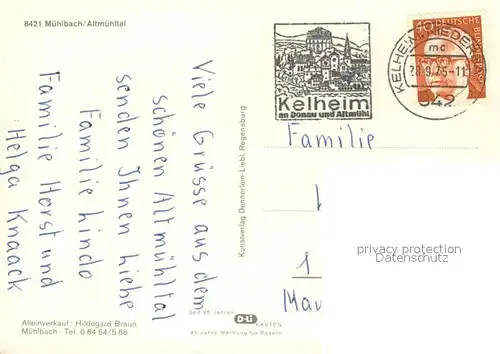 8421 Mühlbach/Altmühltal
Viele Grüsse aus dem
schönen Altmühltal
senden Ihnen liebe
Familie Lindo
Familie Horst und
Helga Knaack
Alleinverkauf: Hildegard Braun
Mühlbach · Tel. 0 84 64/5 88
Kunstverlag Dennerlein-Liebl, Regensburg
Seit 45 Jahren
D-Li
KARTEN
45 Jahre Werbung für Bayern
Kelheim
an Donau und Altmühl
KELHEIM, NIEDER
mc
28.9.75-11
842
40 DEUTSCHE BUNDESPOST
Familie
1
Mav
privacy protection
Datenschutz